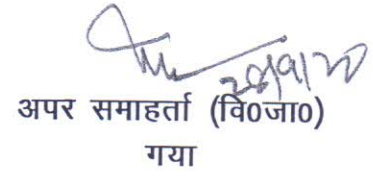 28/9/20
अपर समाहर्ता (वि०जा०)
गया